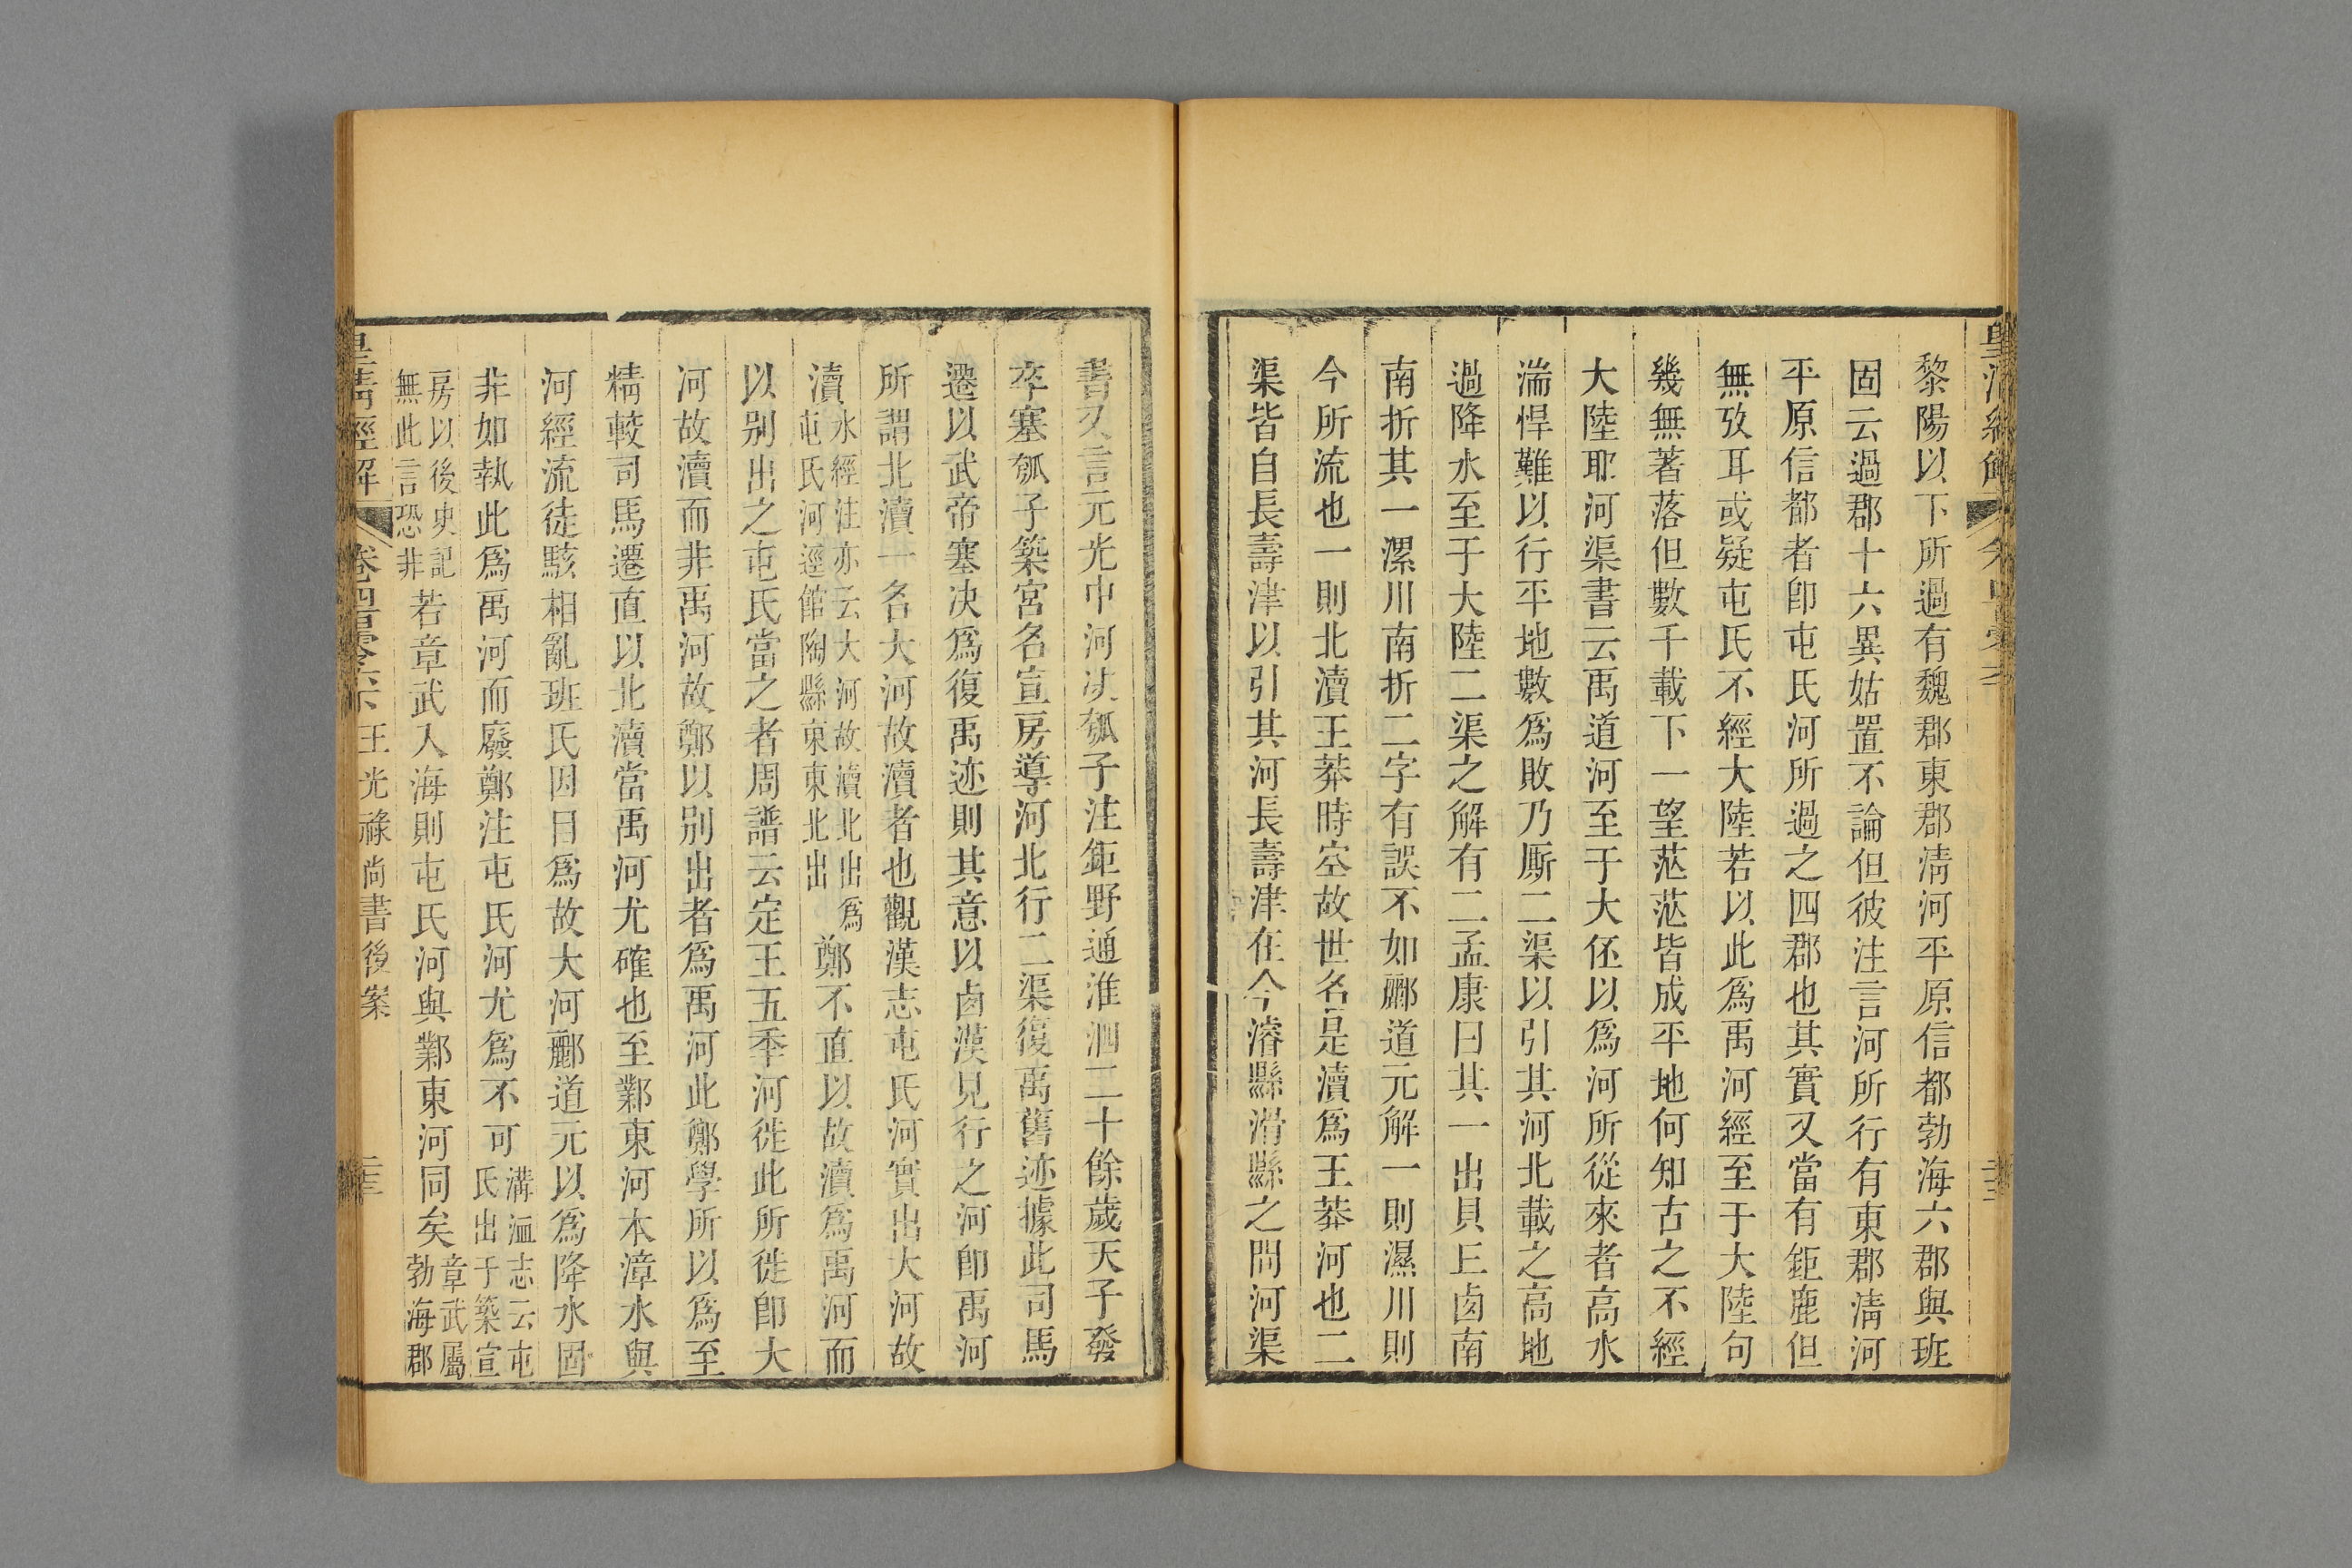 黎陽以下所過有魏郡東郡淸河平原信都勃海六郡與班
固云過郡十六異姑置不論但彼注言河所行有東郡淸河
平原信都者卽屯氏河所過之四郡也其實又當有鉅鹿但
無攷耳或疑屯氏不經大陸若以此爲禹河經至于大陸句
幾無著落但數千載下一望茫茫皆成平地何知古之不經
大陸耶河渠書云禹道河至于大伾以爲河所從來者高水
湍悍難以行平地數爲敗乃厮二渠以引其河北載之高地
過降水至于大陸二渠之解有二孟康曰其一出貝丘㢴南
南折其一漯川南折二字有誤不如酈道元解一則濕川則
今所流也一則北瀆王莽時空故世名是瀆爲王莽河也二
渠皆自長壽津以引其河長壽津在今濬縣滑縣之間河渠
書又言元光中河決瓠子注鉅野通淮泗二十餘歲天子發
卒塞瓠子築宮名宣房導河北行二渠復禹舊迹據此司馬
遷以武帝塞决爲復禹迹則其意以㢴漢見行之河卽禹河
所謂北瀆一名大河故瀆者也觀漢志屯氏河實出大河故
瀆水經注亦云大河故瀆北出爲屯氏河逕館陶縣東東北出鄭不直以故瀆爲禹河而
以別出之屯氏當之者周譜云定王五秊河徙此所徙卽大
河故瀆而非禹河故鄭以別出者爲禹河此鄭學所以爲至
精較司馬遷直以北瀆當禹河尤確也至鄴東河本漳水與
河經流徒駭相亂班氏因目爲故大河酈道元以爲降水固
非如執此爲禹河而廢鄭注屯氏河尤爲不可溝洫志云屯氏出于築宣
房以後史記無此言恐非若章武入海則屯氏河與鄴東河同矣章武屬勃海郡
皇清經解 卷四百零六下 王光祿尚書後案